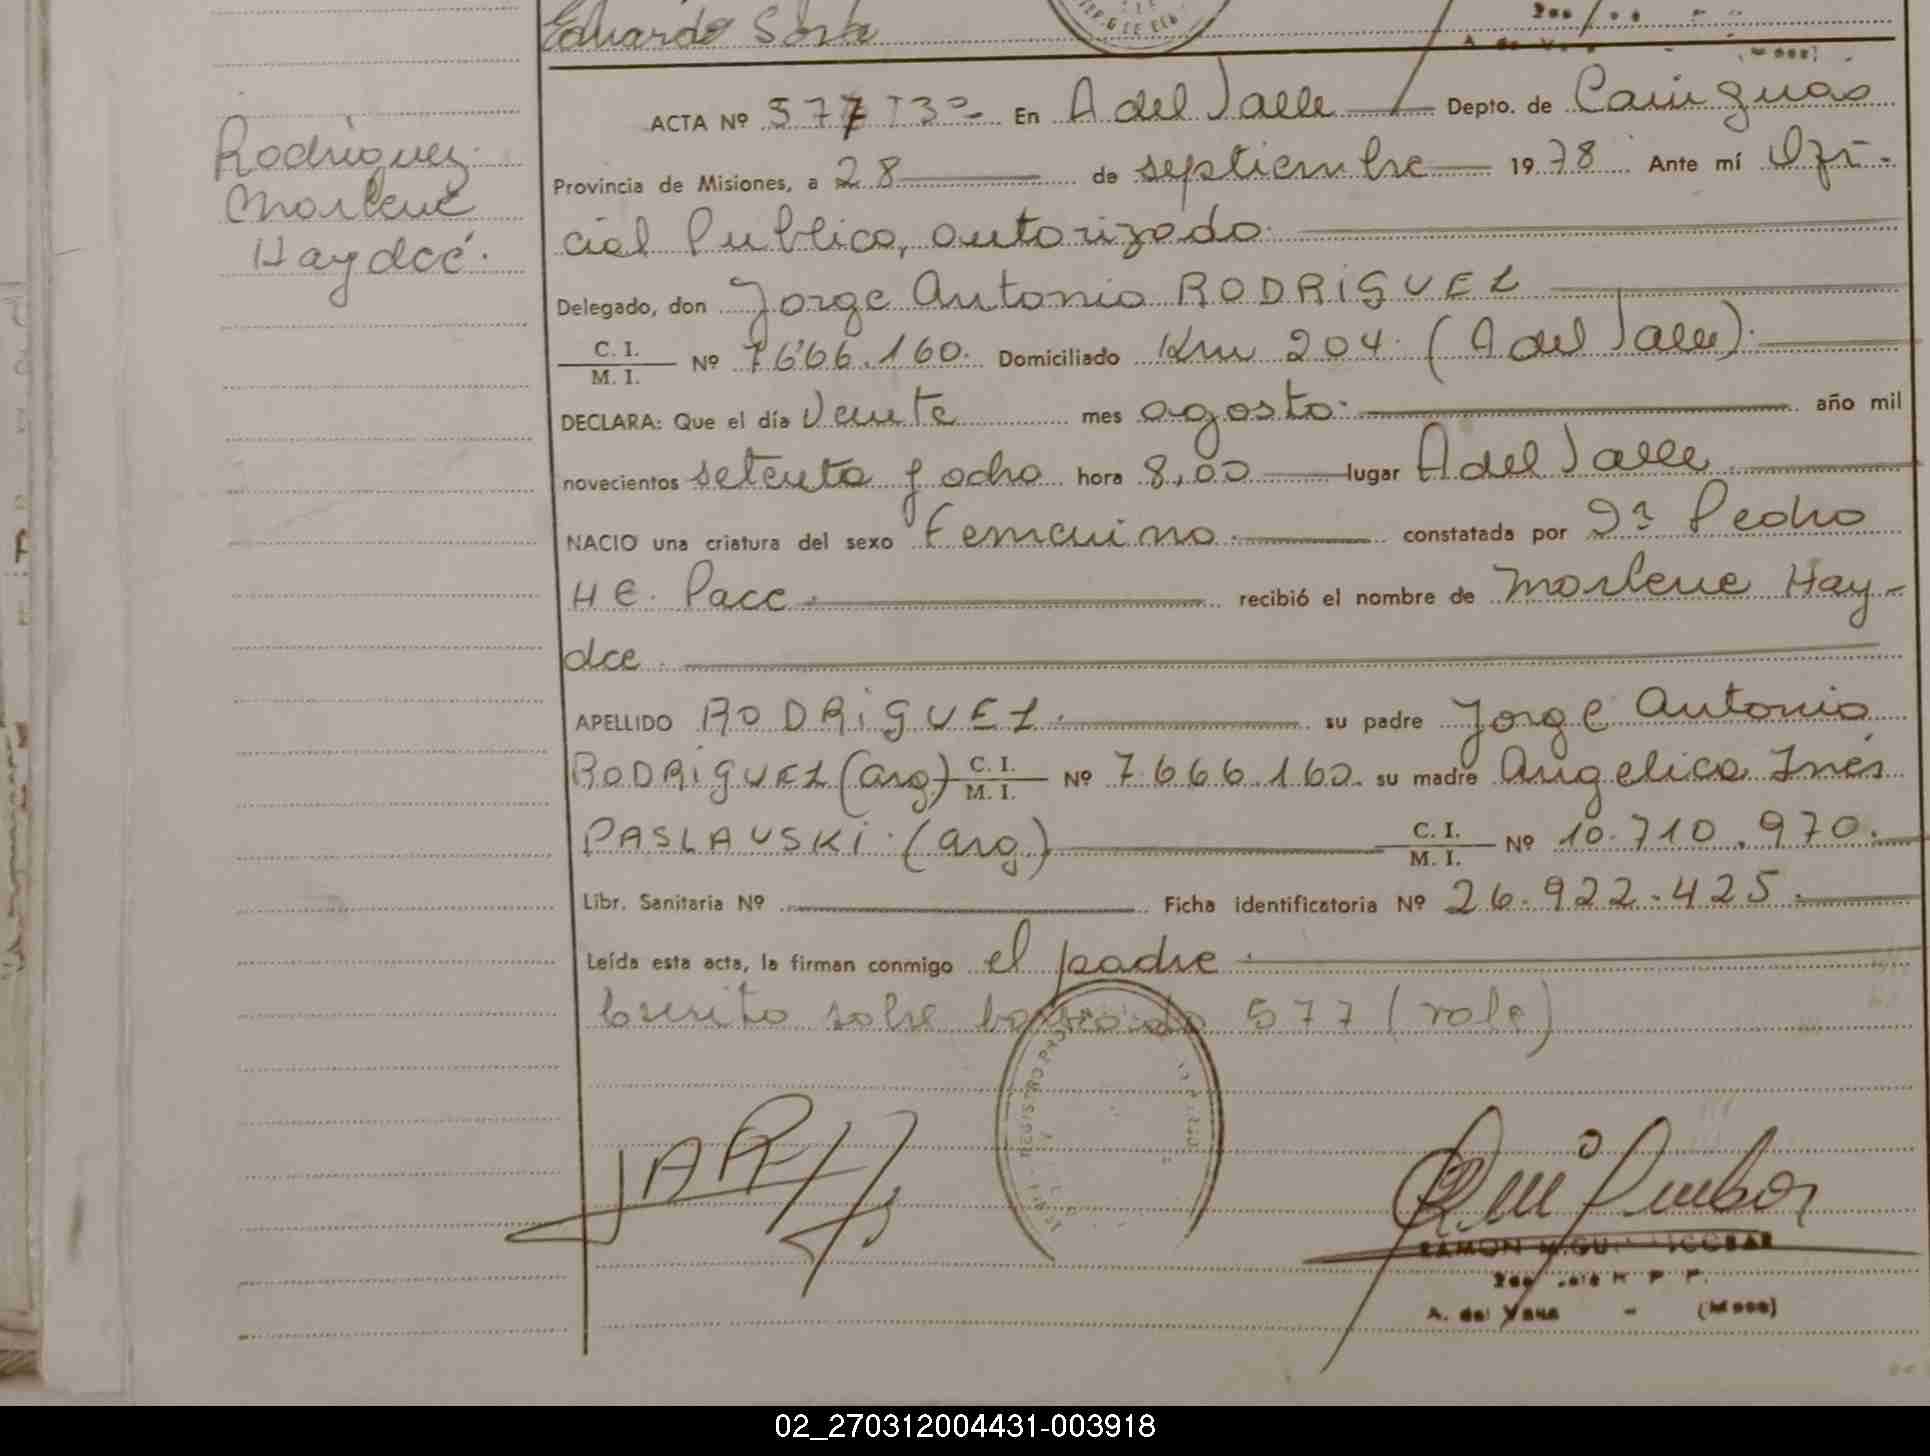 Eduardo
ACTA Nº 577 T3º En A del Valle Depto. de Cainguas
Rodriguez
Marlene
Haydeé.
Provincia de Misiones, a 28 de septiembre 1978 Ante mí Ofi-
cial Publico, autorizado
Delegado, don Jorge Antonio RODRIGUEZ
C. I.
M. I. Nº 7.666.160. Domiciliado Km 204. (A del Valle).
DECLARA: Que el día Veinte mes agosto. año mil
novecientos setenta y ocho hora 8,00 lugar A del Valle
NACIO una criatura del sexo Femenino. constatada por Dr Pedro
HE. Pace. recibió el nombre de Marlene Hay-
dee.
APELLIDO RODRIGUEZ. su padre Jorge Antonio
RODRIGUEZ (arg) C. I.
M. I. Nº 7.666.160. su madre Angelica Inés
PASLAVSKI. (arg) C. I.
M. I. Nº 10.710.970.
Libr. Sanitaria Nº Ficha identificatoria Nº 26.922.425.
Leída esta acta, la firman conmigo el padre.
Escrito sobre borrado 577 (vale)
RAMON MIGUEL ESCOBAR
A. del Valle - (Mnes)
02_270312004431-003918